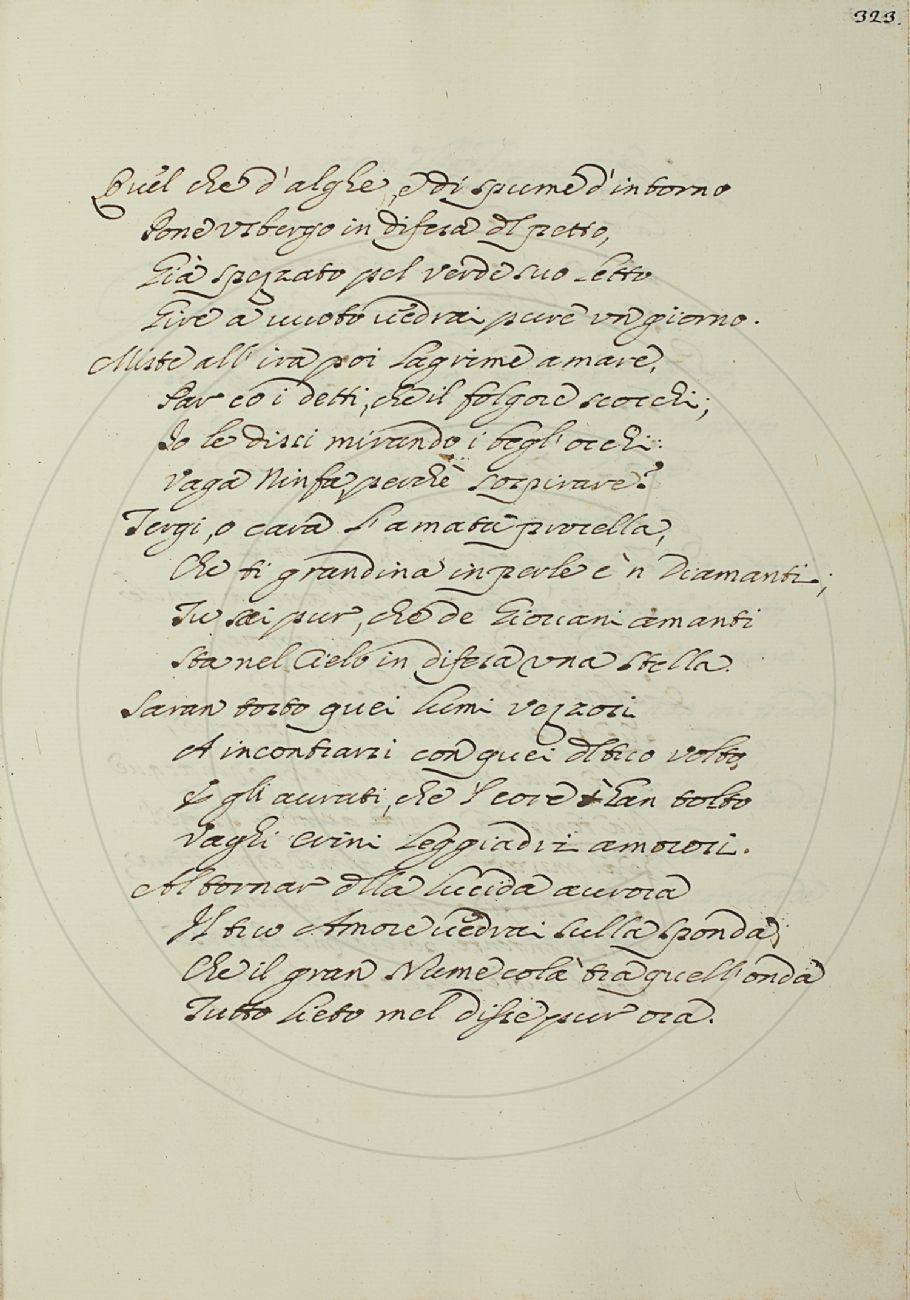 323.
Quel che d'alghe, e di spume d'intorno
Pone vsbergo in difesa dl petto,
Già spezzato pel verde suo letto
Gire a vuoto vedrai pure vn giorno.
Miste all' ira poi lagrime amare,
Par co i detti, che il folgore scocchi;
Io le dissi mirando i begl' occhi:
Vaga Ninfa perchè sospirare?
Tergi, o cara l'amata procella,
Che ti grandina in perle e 'n Diamanti;
Tu sai pur, che de Giovani amanti
Sta nel Cielo in difesa vna stella.
Saran tosto quei lumi vezzosi
A incontrarsi con quei dl tuo volto,
E gli aurati, che 'l core t'han tolto
Vaghi crini leggiadri amorosi.
Al tornar dlla lucida aurora
Il tuo Amore vedrai sulla sponda;
Che il gran Nume colà tra quell' onda
Tutto lieto mel disse pur ora.